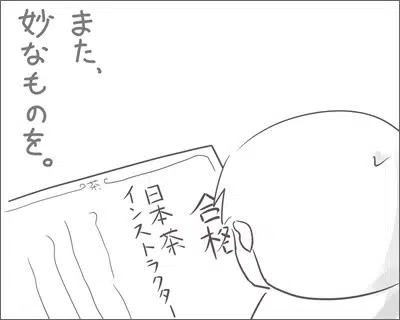 また、
妙なものを。
合格
日本茶
インストラクター
茶